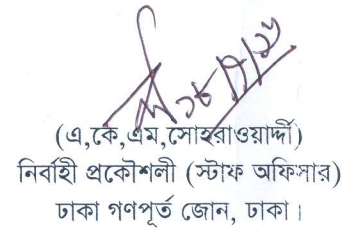 ১৮/৭/১৬
(এ,কে,এম,সোহরাওয়ার্দ্দী)
নির্বাহী প্রকৌশলী (স্টাফ অফিসার)
ঢাকা গণপূর্ত জোন, ঢাকা।